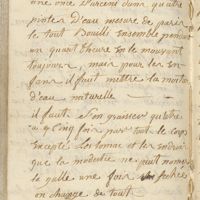 une once D'arcent dum quatre
pintes D'eau mesure de paris
le tout Bouilli Ensemble pendant
un quart Dheure En le mouvant
toujours, mais pour les en-
fans il faut mettre la moitié
d'eau naturelle
il faut S'en graisser quatre
a Cinq fois par tout le corps
Excepté L'estomac et les endroits
que la modestie ne peut nommer
la galle une fois sechée
on change de tout